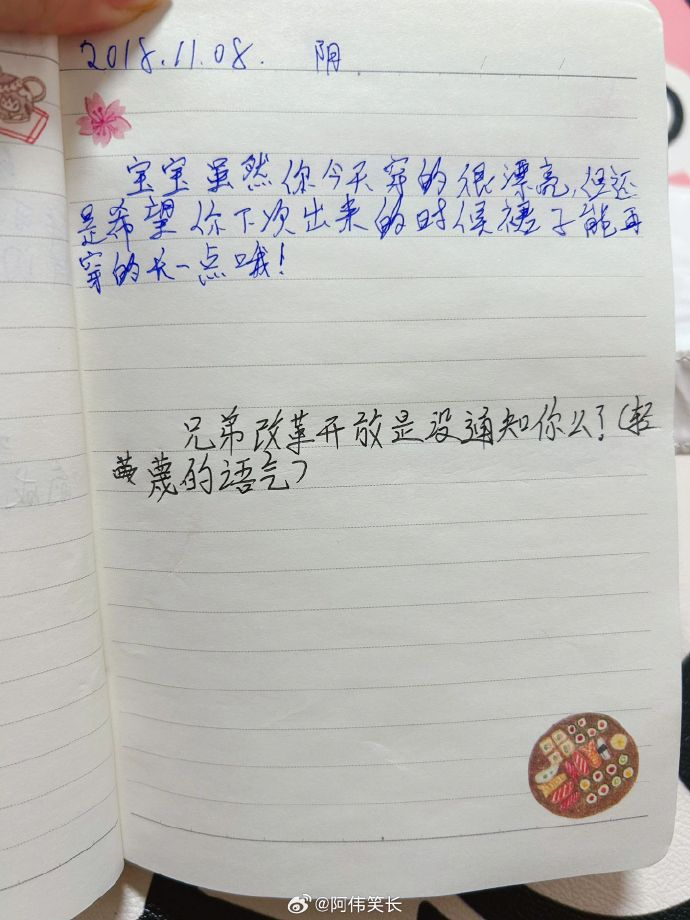 2018.11.08. 阴
宝宝虽然你今天穿的很漂亮,但还
是希望你下次出来的时候裙子能再
穿的长一点哦!
兄弟改革开放是没通知你么?(轻
蔑的语气)
@阿伟笑长